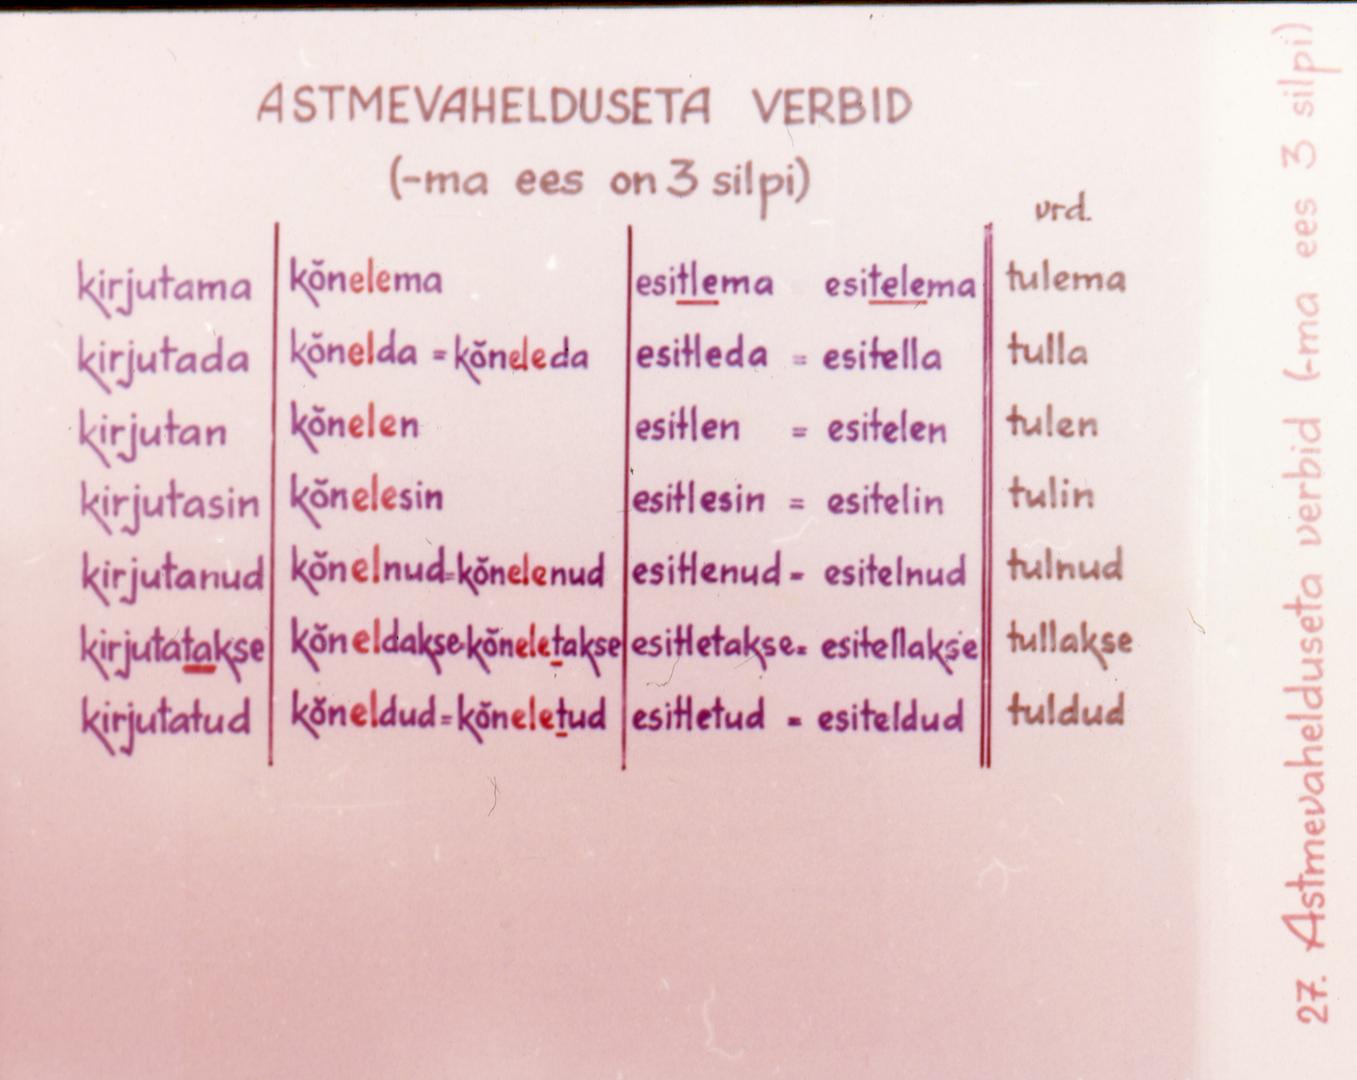 ASTMEVAHELDUSETA VERBID
(-ma ees on 3 silpi)
vrd.
kirjutama kõnelema esitlema esitelema tulema
kirjutada kõnelda = kõneleda esitleda = esitella tulla
kirjutan kõnelen esitlen = esitelen tulen
kirjutasin kõnelesin esitlesin = esitelin tulin
kirjutanud kõnelnud=kõnelenud esitlenud - esitelnud tulnud
kirjutatakse kõneldakse=kõneletakse esitletakse= esitellakse tullakse
kirjutatud kõneldud=kõneletud esitletud = esiteldud tuldud
27. Astmevahelduseta verbid (-ma ees 3 silpi)